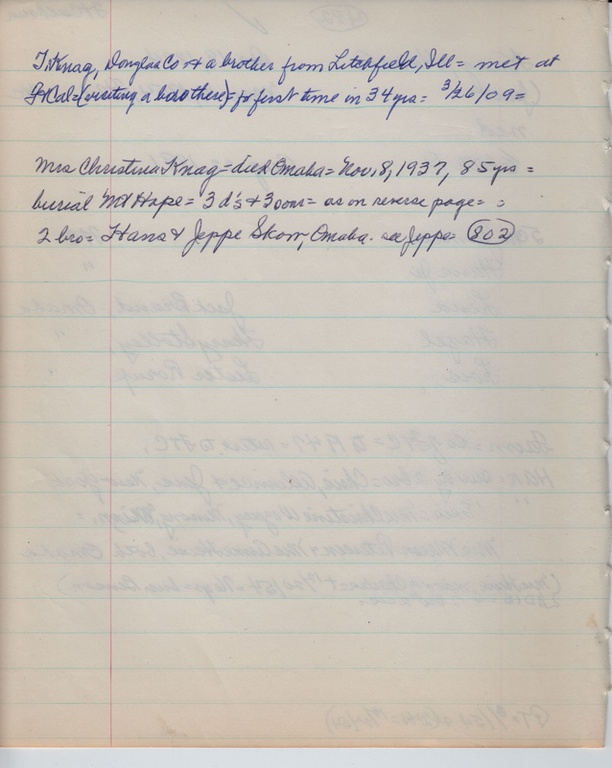 T Knag, Douglas Co + a brother from Litchfield, Ill = met at
Ft Cal = (visiting a bro there) = for first time in 34 yrs = 3/26/09 =
Mrs Christina Knag = died Omaha = Nov, 8, 1937, 85 yrs =
burial Mt Hope = 3 d's + 3 sons = as on reverse page = =
2 bro = Hans & Jeppe Skow, Omaha. see Jeppe = 802